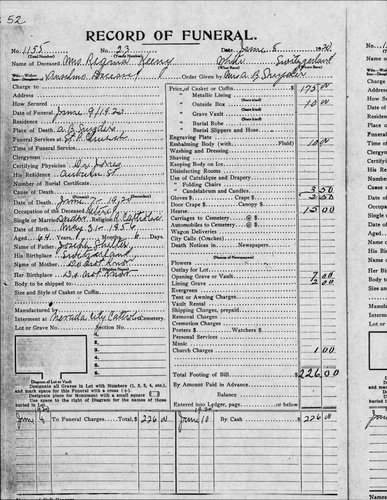 52
RECORD OF FUNERAL.
No. 1155 No. 23 Date, June 8 1920
Name of Deceased Mrs Regina Keeny White Switzerland
Order Given by Mrs A. B. Snyder
Charge to
Address
How Secured
Date of Funeral June 9/1920
Residence
Place of Death A. B. Snyder
Funeral Services at St. P. Church
Time of Funeral Service
Clergyman
Certifying Physician Dr Jones
His Residence Auburn St
Number of Burial Certificate
Cause of Death
Date of Death June 7-1920
Occupation of the Deceased
Single or Married Religion Catholic
Date of Birth May 31-1856
Aged 64 Years Months 6 Days
Name of Father Joseph
His Birthplace Switzerland
Name of Mother Do Not Know
Her Birthplace Do Not Know
Body to be shipped to
Size and Style of Casket or Coffin
Manufactured by
Interment at Nevada City Catholic Cemetery
Lot or Grave No. Section No.
1 2 3 4 5 6
Diagram of Lot or Vault
Designate all Graves in Lot with Numbers (1, 2, 3, 4, etc.)
and mark space for this Funeral with a cross (+).
Designate place for Monument with a small square
Use space to the right of Diagram for the names of those
buried in Lot.
Price of Casket or Coffin 175 00
" Metallic Lining
" Outside Box 10 00
" Grave Vault
" Burial Robe
" Burial Slippers and Hose
Engraving Plate
Embalming Body (with Fluid) 10 00
Washing and Dressing
Shaving
Keeping Body on Ice
Disinfecting Rooms
Use of Catafalque and Drapery
" Folding Chairs
" Candelabrum and Candles 3 50
Gloves $ Crape $ 2 50
Door Crape $ Canopy $
Hearse 15 00
Carriages to Cemetery @ $
Automobiles to Cemetery @ $
Wagon Deliveries
City Calls (Coaches)
Death Notices in Newspapers
Flowers
Outlay for Lot
Opening Grave or Vault 7 00
Lining Grave 2 00
Evergreen
Tent or Awning Charges
Vault Rental
Shipping Charges, prepaid
Removal Charges
Cremation Charges
Porters $ Watchers $
Personal Services
Music
Church Charges 1 00
Total Footing of Bill 226 00
By Amount Paid in Advance
Balance
Entered into Ledger, page or below.
1920 June 9 To Funeral Charges Total, $ 226 00 1920 June 10 By Cash $ 226 00